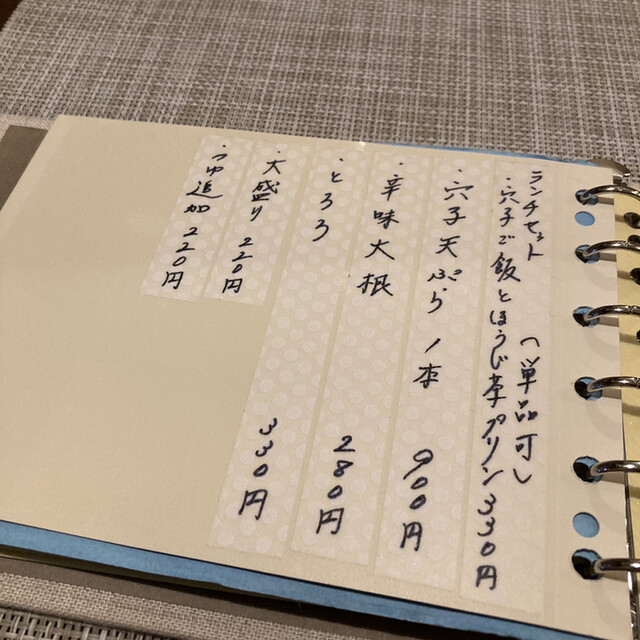 ランチセット
・穴子ご飯とほうじ茶プリン330円
(単品可)
・穴子天ぷら1本 900円
・辛味大根 280円
・とろろ 330円
・大盛り 220円
・つゆ追加 220円